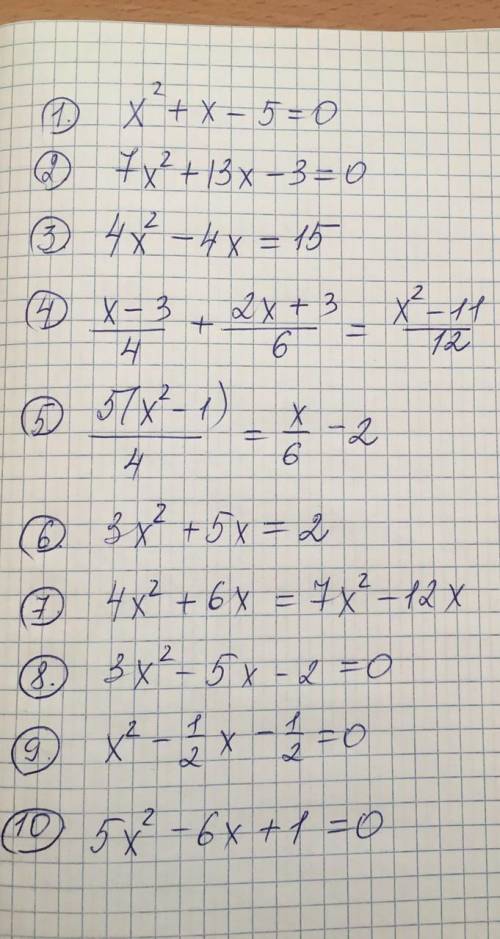 1. x² + x - 5 = 0
2 7x² + 13x - 3 = 0
3 4x² - 4x = 15
4 (x - 3)/4 + (2x + 3)/6 = (x² - 11)/12
5 5(x² - 1)/4 = x/6 - 2
6. 3x² + 5x = 2
7 4x² + 6x = 7x² - 12x
8. 3x² - 5x - 2 = 0
9. x² - 1/2 x - 1/2 = 0
10 5x² - 6x + 1 = 0